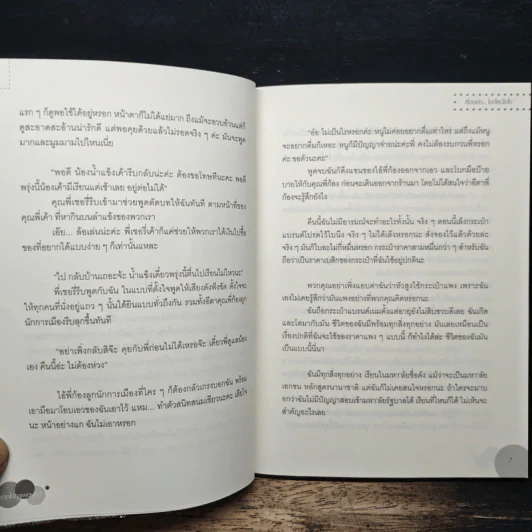 แรก ๆ ก็ดูพอใช้ได้อยู่หรอก หน้าตาก็ไม่ได้แย่มาก ถึงแม้จะอวบอ้วนแต่ก็
ดูสะอาดสะอ้านน่ารักดี แต่พอคุยด้วยแล้วไม่รอดจริง ๆ ค่ะ มันจะพูด
มากและมูมมามไปไหนเนี่ย
"พอดี น้องน้ำแข็งเค้ารีบกลับน่ะค่ะ ต้องขอโทษทีนะคะ พอดี
พรุ่งนี้น้องเค้ามีเรียนแต่เช้าเลย อยู่ต่อไม่ได้"
คุณพี่เชอรี่รีบเข้ามาช่วยพูดตัดบทให้ฉันทันที ตามหน้าที่ของ
คุณพี่เค้า ที่หากินบนลำแข้งของพวกเรา
เอ๊ย... ล้อเล่นน่ะค่ะ พี่เชอรี่เค้าก็แค่ช่วยให้พวกเราได้เงินไปซื้อ
ของที่อยากได้แบบง่าย ๆ ก็เท่านั้นแหละ
"ไป กลับบ้านเถอะจ้ะ น้ำแข็งเดี๋ยวพรุ่งนี้ตื่นไปเรียนไม่ไหวนะ"
พี่เชอรี่รีบพูดกับฉัน ในแบบที่ตั้งใจพูดให้เสียงดังฟังชัด ตั้งใจจะ
ให้ทุกคนที่นั่งอยู่แถว ๆ นั้นได้ยินแบบทั่วถึงกัน รวมทั้งอีตาคุณพี่ก้องลูก
นักการเมืองรีบลุกขึ้นทันที
"อย่าเพิ่งกลับสิจ๊ะ คุยกับพี่ก่อนไม่ได้เหรอจ๊ะ เดี๋ยวพี่ดูแลน้อง
เอง คืนนี้อ่ะ ไม่ต้องห่วง"
ไอ้พี่ก้องลูกนักการเมืองที่ใคร ๆ ก็ต้องกลัวเกรงบอกฉัน พร้อม
เอามือมาโอบเอวของฉันเอาไว้ แหม... ทำตัวสนิทสนมเชียวนะคะ เสียใจ
นะ หน้าอย่างแก ฉันไม่เอาหรอก
"อ๋อ ไม่เป็นไรหรอกค่ะ หนูไม่ค่อยอยากดื่มเท่าไหร่ แต่ถึงแม้หนู
จะอยากดื่มก็เหอะ หนูก็มีปัญญาจ่ายน่ะค่ะพี่ คงไม่ต้องรบกวนพี่หรอก
ค่ะ ขอตัวนะคะ"
พูดจบฉันก็ดึงแขนของไอ้พี่ก้องออกจากเอว และโบกมือบ๊าย
บายให้กับคุณพี่ก้อง ก่อนจะเดินออกจากร้านมา โดยไม่ได้สนใจว่าอีตาพี่
ก้องจะรู้สึกยังไง
คืนนี้ฉันไม่มีอารมณ์จะทำอะไรทั้งนั้น จริง ๆ ตอนนี้เล็งกระเป๋า
แบรนด์เปรตไว้ใบนึง จริง ๆ ไม่ได้เล็งหรอกนะ สั่งจองไว้แล้วด้วยล่ะ
จริง ๆ มันก็ใบละไม่กี่หมื่นหรอก กระเป๋าราคาสามหมื่นกว่า ๆ สำหรับฉัน
ถือว่าเป็นราคาเบสิกของกระเป๋าที่ฉันใช้อยู่ปกตินะ
พวกคุณอย่าเพิ่งแอบด่าฉันว่าหัวสูงใช้กระเป๋าแพง เพราะฉัน
เองไม่เคยรู้สึกว่ามันแพงอย่างที่พวกคุณคิดหรอกนะ
ฉันถือกระเป๋าแบรนด์เนมตั้งแต่อายุยังไม่สิบขวบดีเลย ฉันเกิด
และโตมากับมัน ชีวิตของฉันมีพร้อมทุกสิ่งทุกอย่าง มันเลยเหมือนเป็น
เรื่องปกติที่ฉันจะใช้ของราคาแพง ๆ แบบนี้ ก็ทำไงได้ล่ะ ชีวิตของฉันมัน
เป็นแบบนี้นี่นา
ฉันมีทุกสิ่งทุกอย่าง เรียนในมหา'ลัยชื่อดัง แม้ว่าจะเป็นมหา'ลัย
เอกชน หลักสูตรนานาชาติ แต่ฉันก็ไม่เคยสนใจหรอกนะ ถ้าใครจะมาบ
อกว่าฉันไม่มีปัญญาสอบเข้ามหา'ลัยรัฐบาลได้ เรียนที่ไหนก็ได้ ไม่เห็นจะ
สำคัญอะไรเลย
7